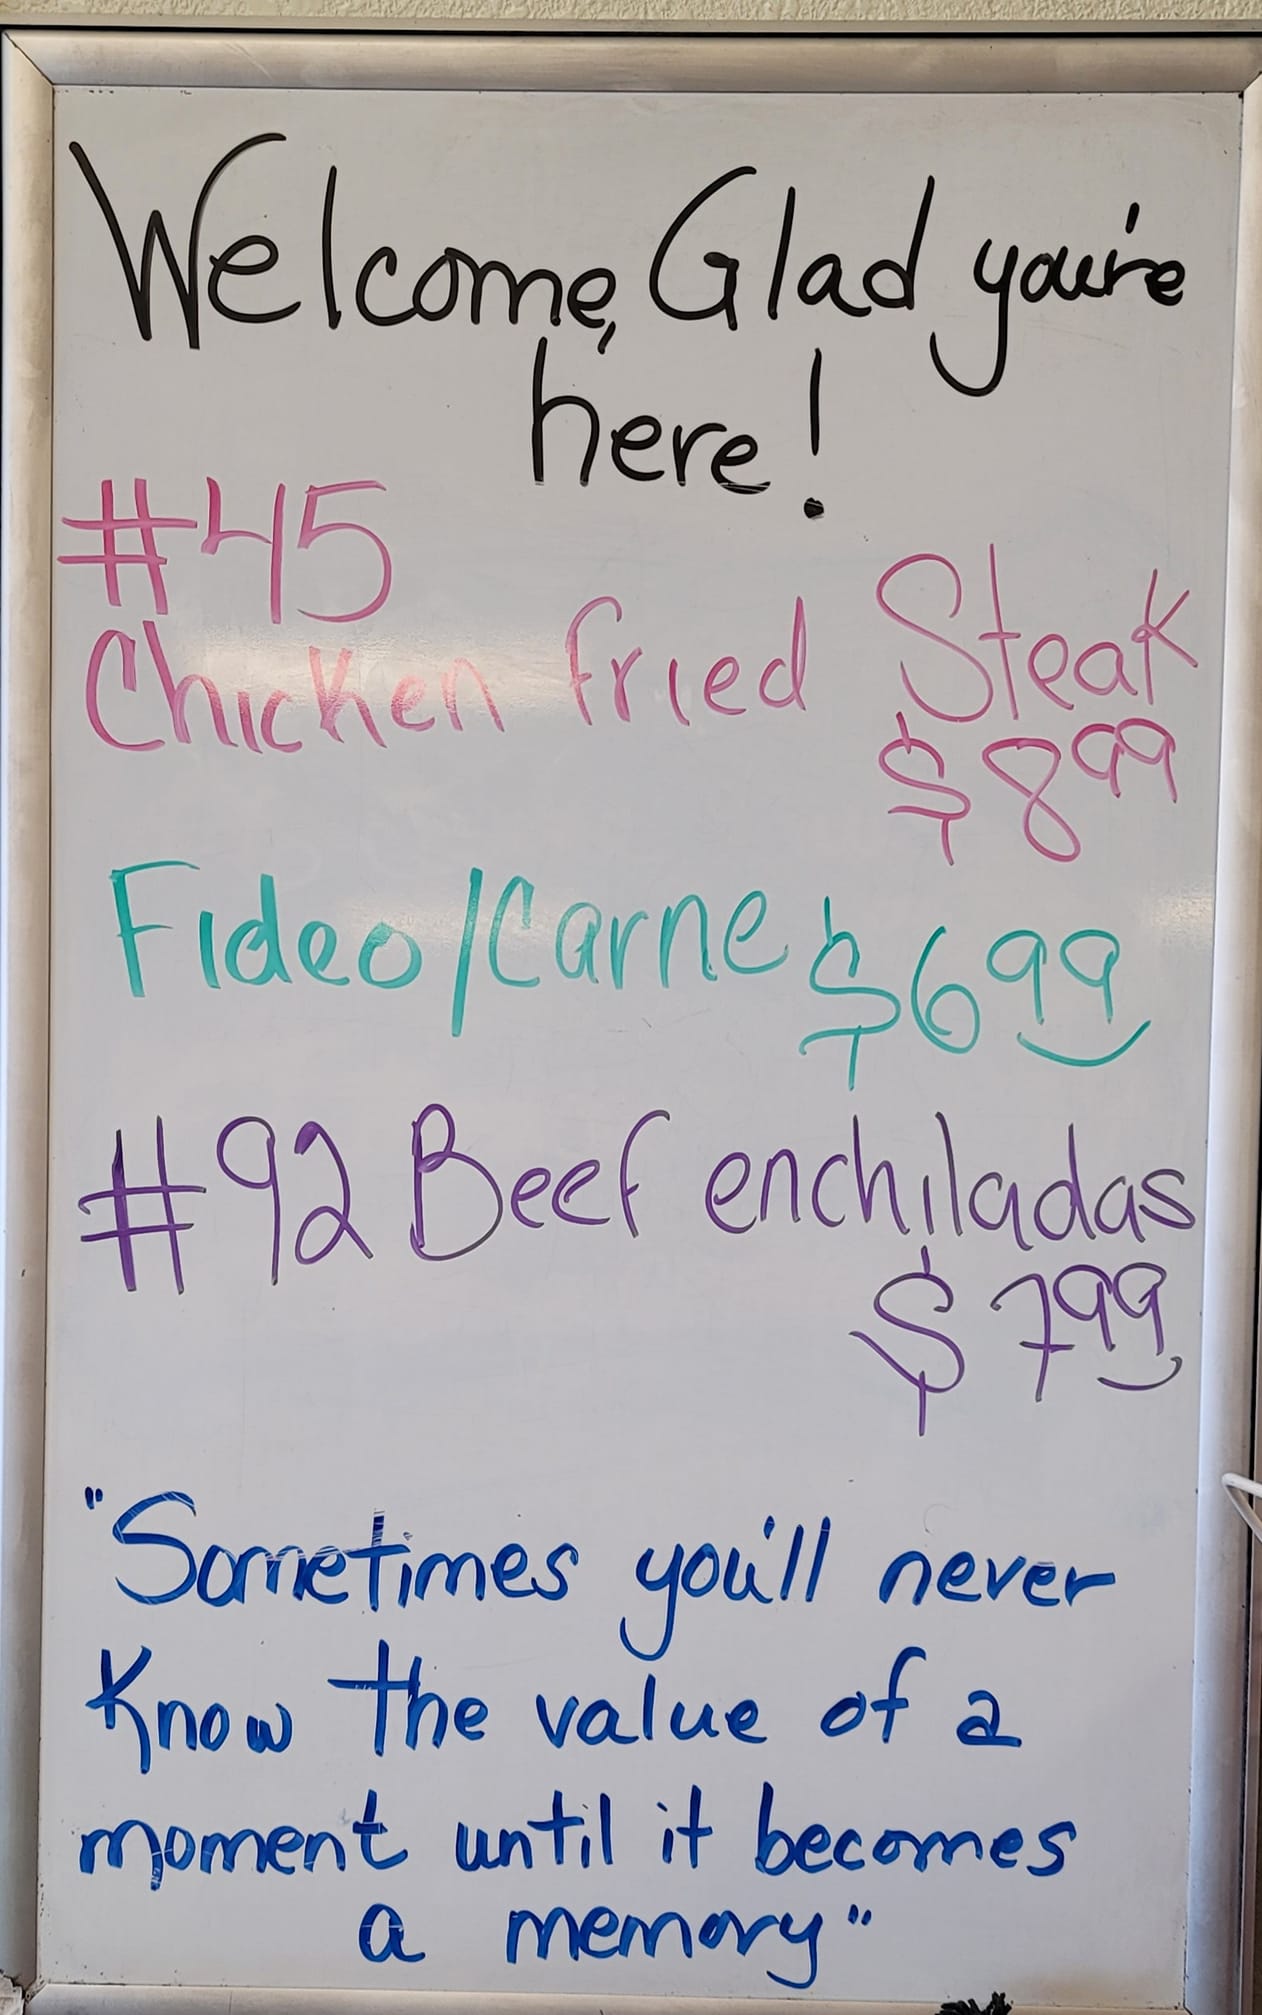 Welcome, Glad you're
here!
#45
Chicken fried Steak
$8.99
Fideo/Carne $6.99
#92 Beef enchiladas
$7.99
"Sometimes you'll never
Know the value of a
moment until it becomes
a memory"